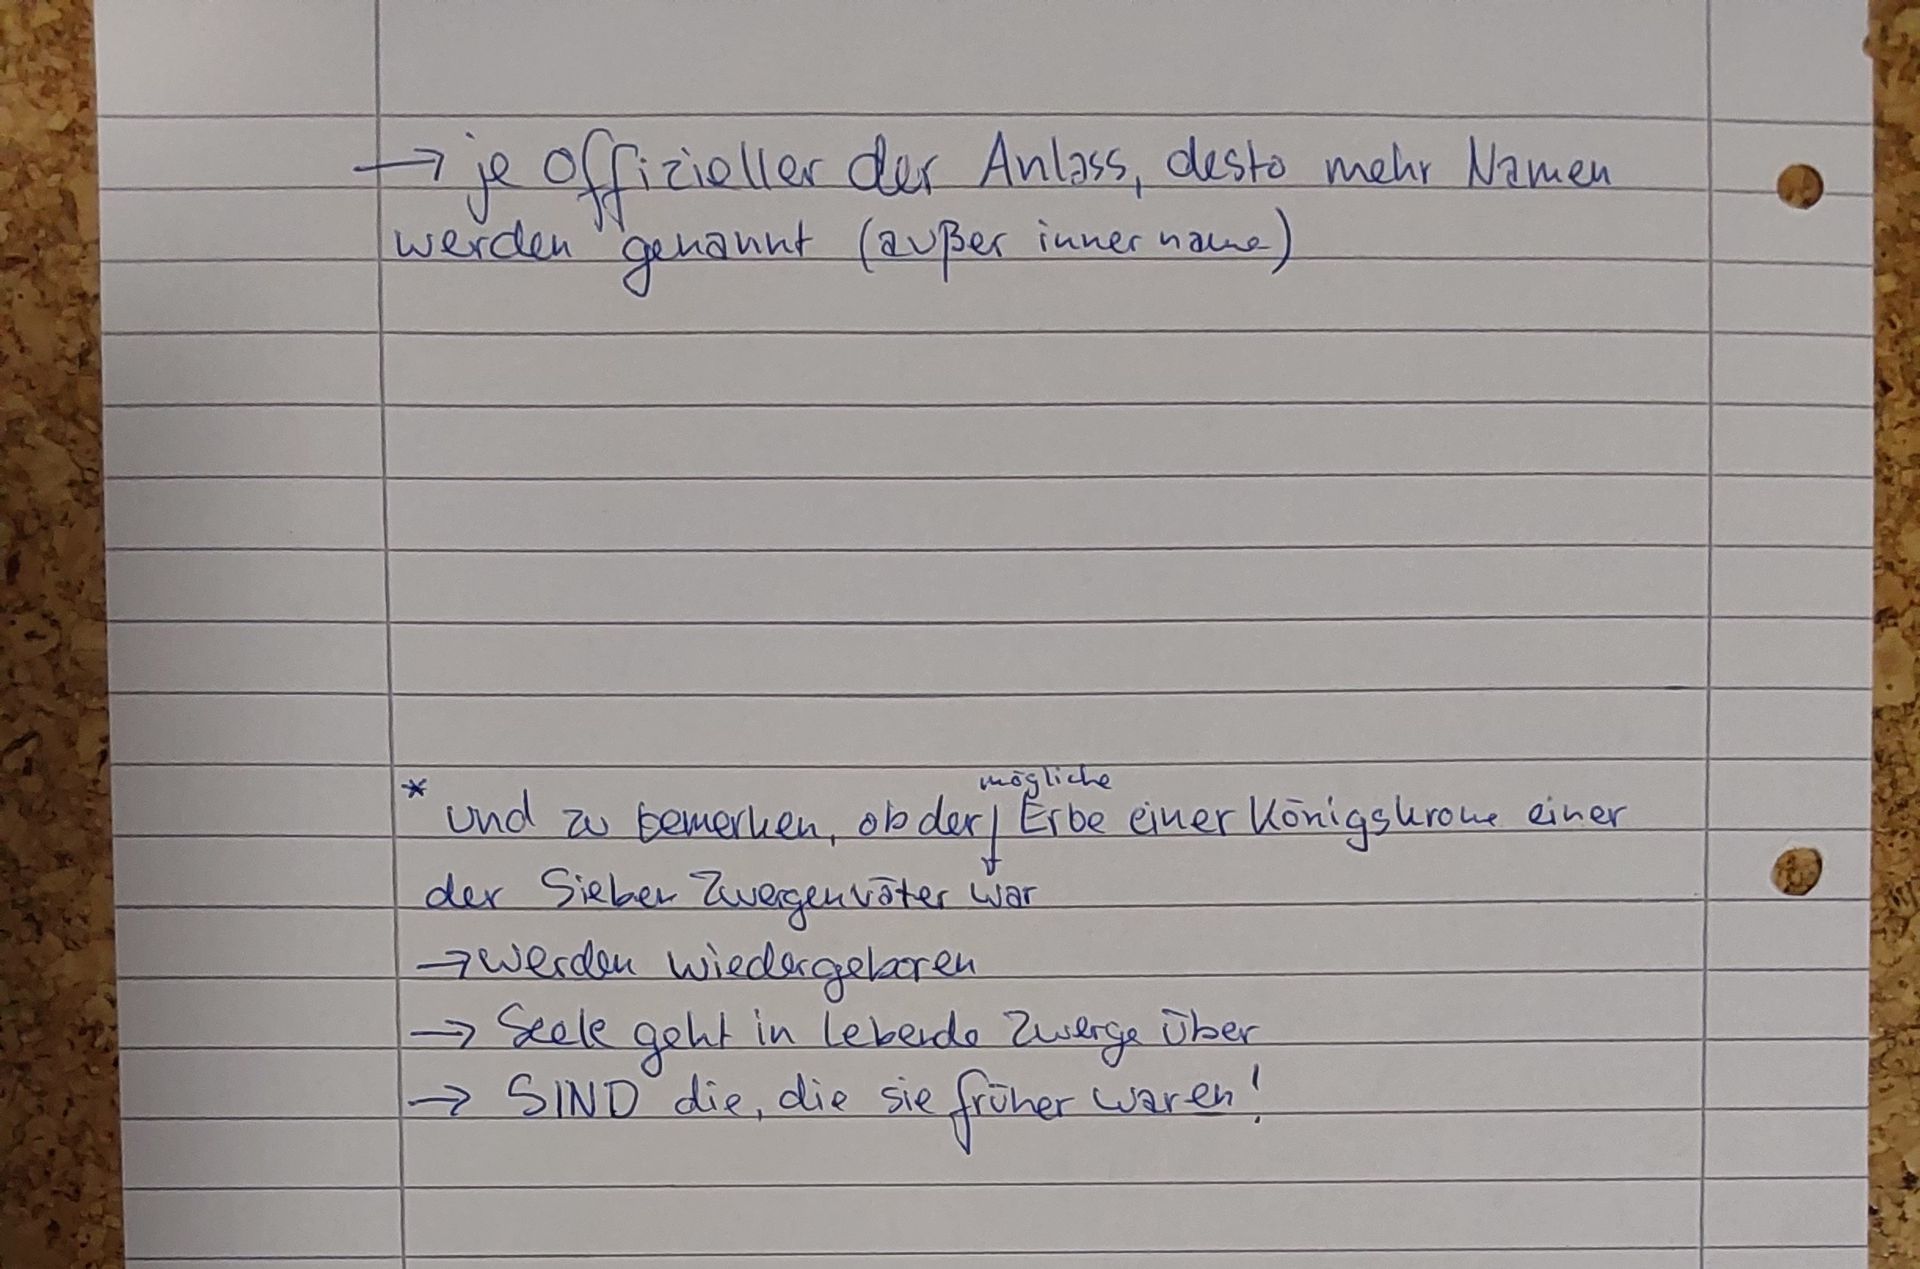 → je offizieller der Anlass, desto mehr Namen
werden genannt (außer innername)
* mögliche
und zu bemerken, ob der Erbe einer Königskrone einer
der Sieben Zwergenväter war
→ werden wiedergeboren
→ Seele geht in lebende Zwerge über
→ SIND die, die sie früher waren!